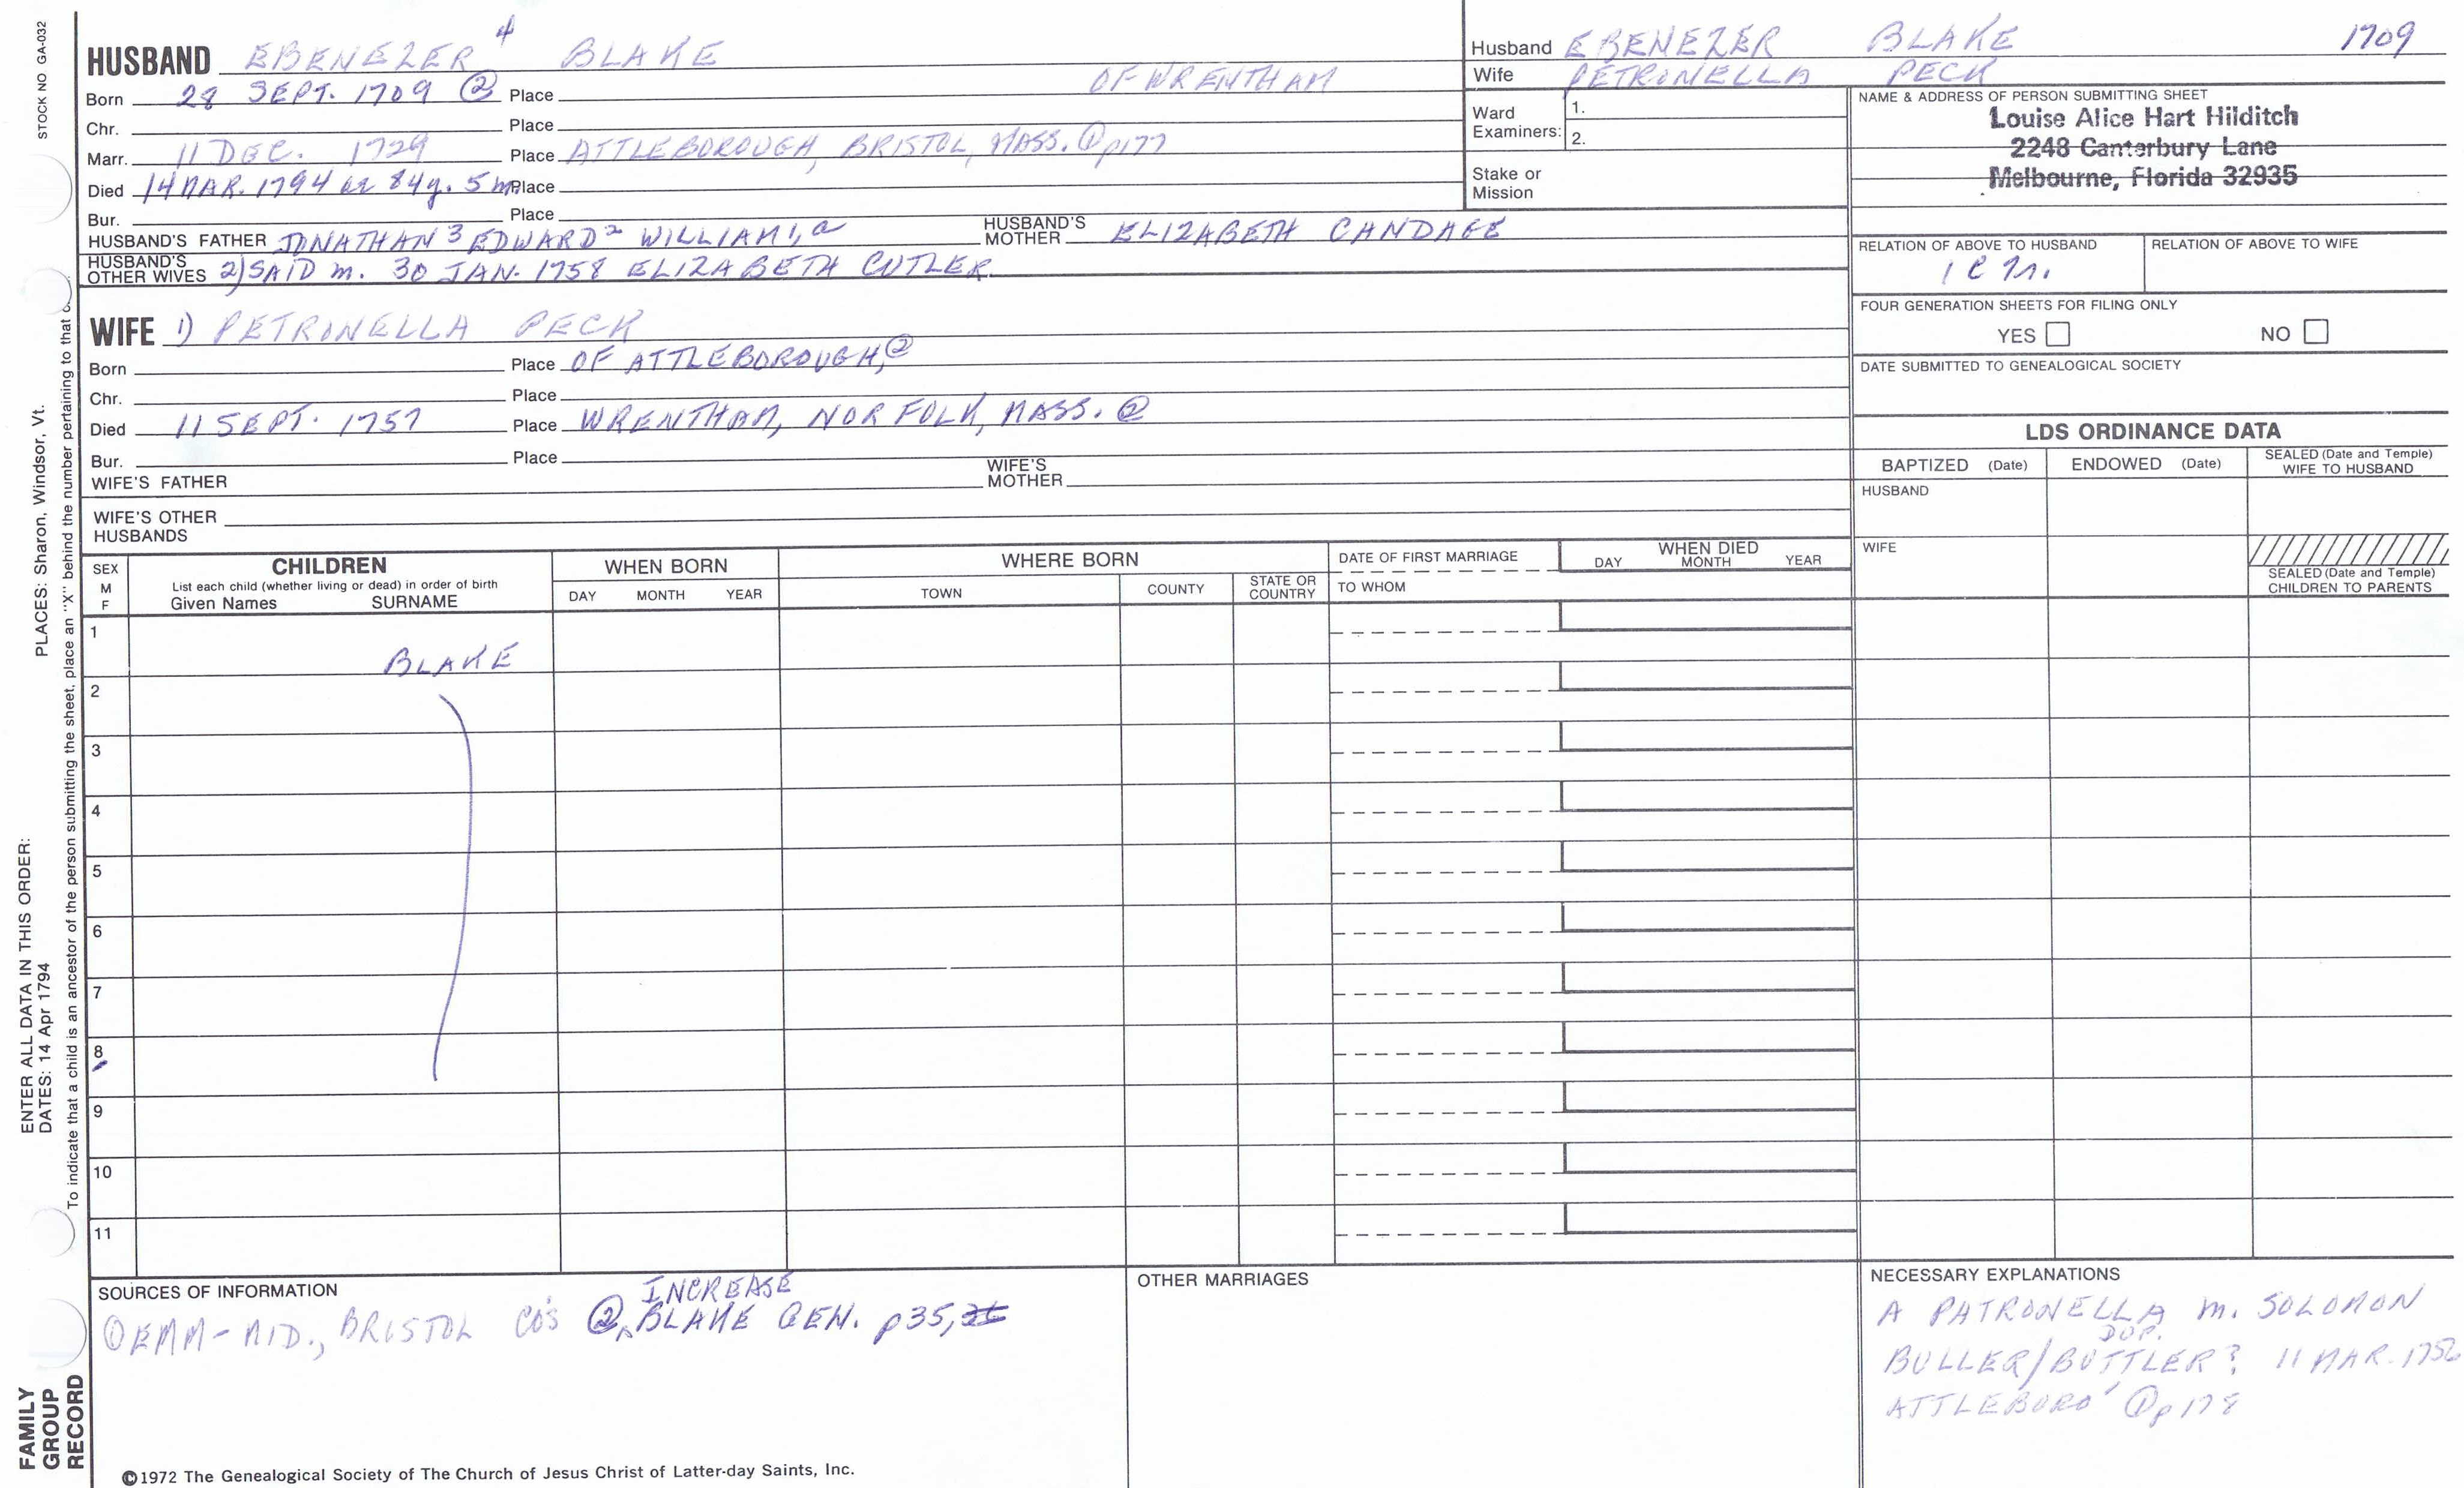 STOCK NO GA-032
HUSBAND EBENEZER 4 BLAKE
OF WRENTHAM
Born 28 SEPT. 1709 ② Place
Chr. Place
Marr. 11 DEC. 1729 Place ATTLEBOROUGH, BRISTOL, MASS. ① p177
Died 14 MAR. 1794 ae 84y. 5m Place
Bur. Place
HUSBAND'S FATHER JONATHAN 3 EDWARD 2 WILLIAM 1, a HUSBAND'S MOTHER ELIZABETH CANDAGE
HUSBAND'S OTHER WIVES 2) SAID m. 30 JAN. 1758 ELIZABETH CUTLER
Husband EBENEZER BLAKE 1709
Wife PETRONELLA PECK
Ward Examiners: 1.
2.
Stake or Mission
NAME & ADDRESS OF PERSON SUBMITTING SHEET
Louise Alice Hart Hilditch
2248 Canterbury Lane
Melbourne, Florida 32935
RELATION OF ABOVE TO HUSBAND RELATION OF ABOVE TO WIFE
FOUR GENERATION SHEETS FOR FILING ONLY
YES NO
DATE SUBMITTED TO GENEALOGICAL SOCIETY
WIFE 1) PETRONELLA PECK
Born Place OF ATTLEBOROUGH, ②
Chr. Place
Died 11 SEPT. 1757 Place WRENTHAM, NORFOLK, MASS. ②
Bur. Place
WIFE'S FATHER WIFE'S MOTHER
WIFE'S OTHER HUSBANDS
LDS ORDINANCE DATA
BAPTIZED (Date) ENDOWED (Date) SEALED (Date and Temple) WIFE TO HUSBAND
HUSBAND
WIFE
SEALED (Date and Temple) CHILDREN TO PARENTS
SEX M F
CHILDREN
List each child (whether living or dead) in order of birth
Given Names SURNAME
WHEN BORN
DAY MONTH YEAR
WHERE BORN
TOWN COUNTY STATE OR COUNTRY
DATE OF FIRST MARRIAGE
TO WHOM
WHEN DIED
DAY MONTH YEAR
1 BLAKE
2
3
4
5
6
7
8
9
10
11
SOURCES OF INFORMATION
INCREASE
① EMM-MID., BRISTOL CO'S ② BLAKE GEN. p35,
OTHER MARRIAGES
NECESSARY EXPLANATIONS
A PATRONELLA m. SOLOMON
DUP.
BULLER/BUTTLER? 11 MAR. 1752
ATTLEBORO' ① p178
©1972 The Genealogical Society of The Church of Jesus Christ of Latter-day Saints, Inc.
ENTER ALL DATA IN THIS ORDER:
DATES: 14 Apr 1794
PLACES: Sharon, Windsor, Vt.
To indicate that a child is an ancestor of the person submitting the sheet, place an "X" behind the number pertaining to that
FAMILY
GROUP
RECORD